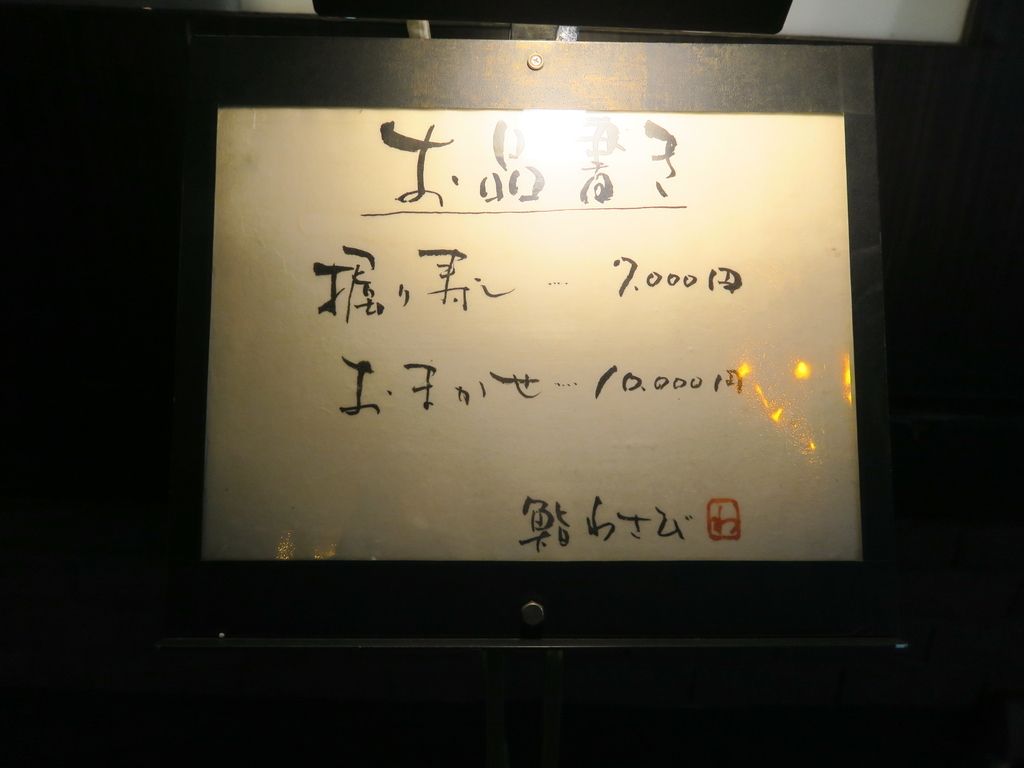 お品書き
握り寿し … 7.000円
おまかせ … 10.000円
鮨 わさび わ